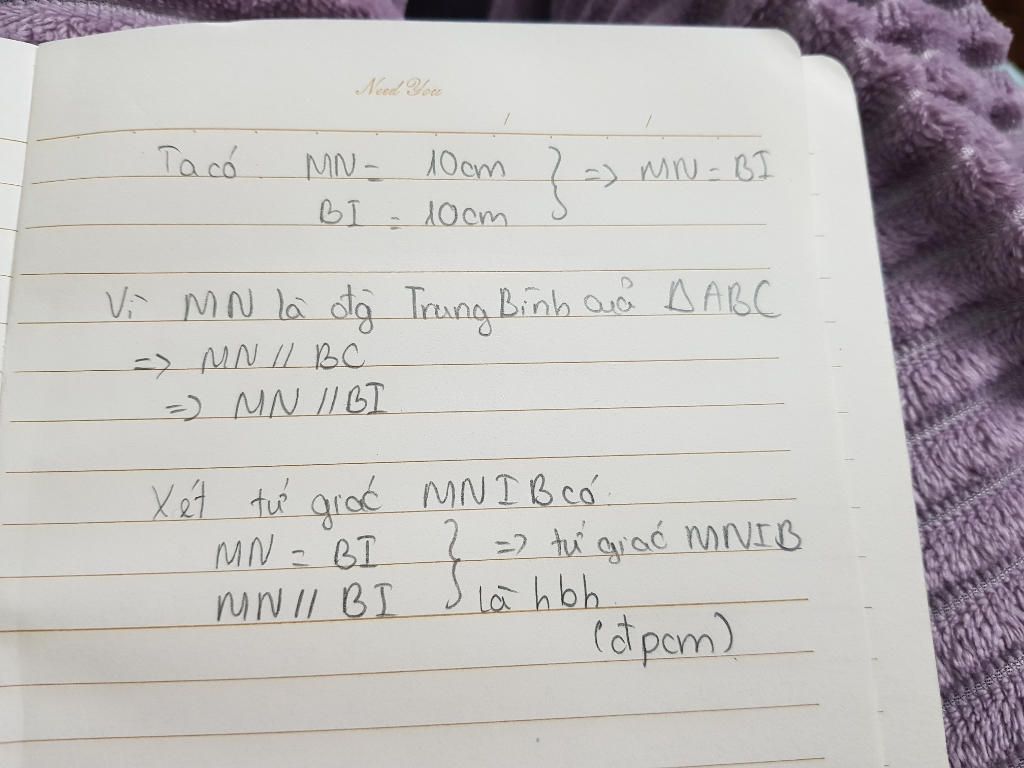 Need You
Ta có MN = 10cm } => MN = BI
BI = 10cm
Vì MN là đg Trung Bình quả ΔABC
=> MN // BC
=> MN // BI
Xét tứ giác MNIB có
MN = BI } => tứ giác MNIB
MN // BI là hbh
(đpcm)